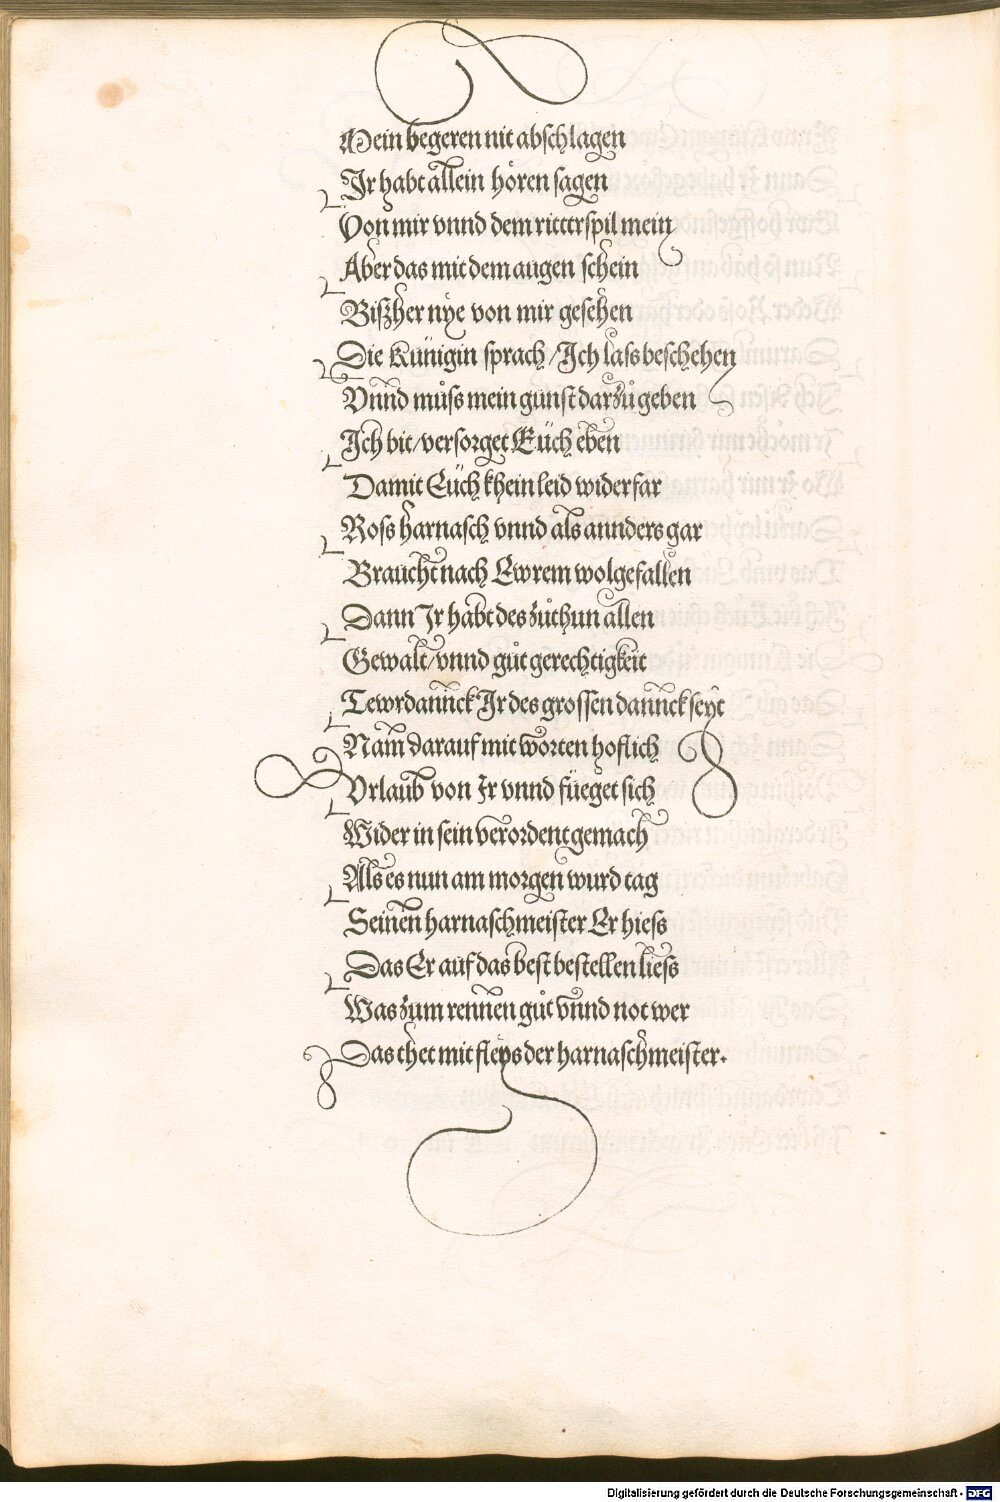 Mein begeren nit abschlagen
Jr habt allein hören sagen
Von mir vnnd dem ritterspil mein
Aber das mit dem augen schein
Biszher nye von mir gesehen
Die Künigin sprach / Ich lass beschehen
Vnnd můss mein gunst darzů geben
Ich bit / versorget Eüch eben
Damit Eüch khein leid widerfar
Ross harnasch vnnd als annders gar
Braucht nach Ewrem wolgefallen
Dann Jr habt des zůthun allen
Gewalt / vnnd gůt gerechtigkeit
Tewrdannck Jr des grossen dannck seyt
Nam darauf mit worten hoflich
Vrlaub von Jr vnnd füeget sich
Wider in sein verordent gemach
Als es nun am morgen wurd tag
Seinen harnaschmeister Er hiess
Das Er auf das best bestellen liess
Was zum rennen gůt vnnd not wer
Das thet mit fleys der harnaschmeister.
Digitalisierung gefördert durch die Deutsche Forschungsgemeinschaft - DFG